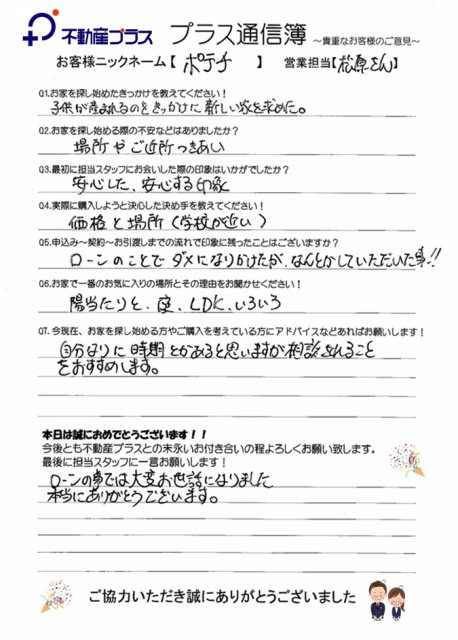 不動産プラス プラス通信簿 ～貴重なお客様のご意見～
お客様ニックネーム【 ポテチ 】 営業担当【松原さん】
Q1.お家を探し始めたきっかけを教えてください！
子供が産まれるのをきっかけに新しい家を求めた。
Q2.お家を探し始める際の不安などはありましたか？
場所やご近所つきあい
Q3.最初に担当スタッフにお会いした際の印象はいかがでしたか？
安心した、安心する印象
Q4.実際に購入しようと決心した決め手を教えてください！
価格と場所（学校が近い）
Q5.申込み～契約～お引渡しまでの流れで印象に残ったことはございますか？
ローンのことでダメになりかけたが、なんとかしていただいた事!!
Q6.お家で一番のお気に入りの場所とその理由をお聞かせください！
陽当たりと、庭、LDK、いろいろ
Q7.今現在、お家を探し始める方やご購入を考えている方にアドバイスなどあればお願いします！
自分なりに時期とかあると思いますが相談されること
をおすすめします。
本日は誠におめでとうございます！！
今後とも不動産プラスとの末永いお付き合いの程よろしくお願い致します。
最後に担当スタッフに一言お願いします！
ローンの事では大変お世話になりました
本当にありがとうございます。
ご協力いただき誠にありがとうございました